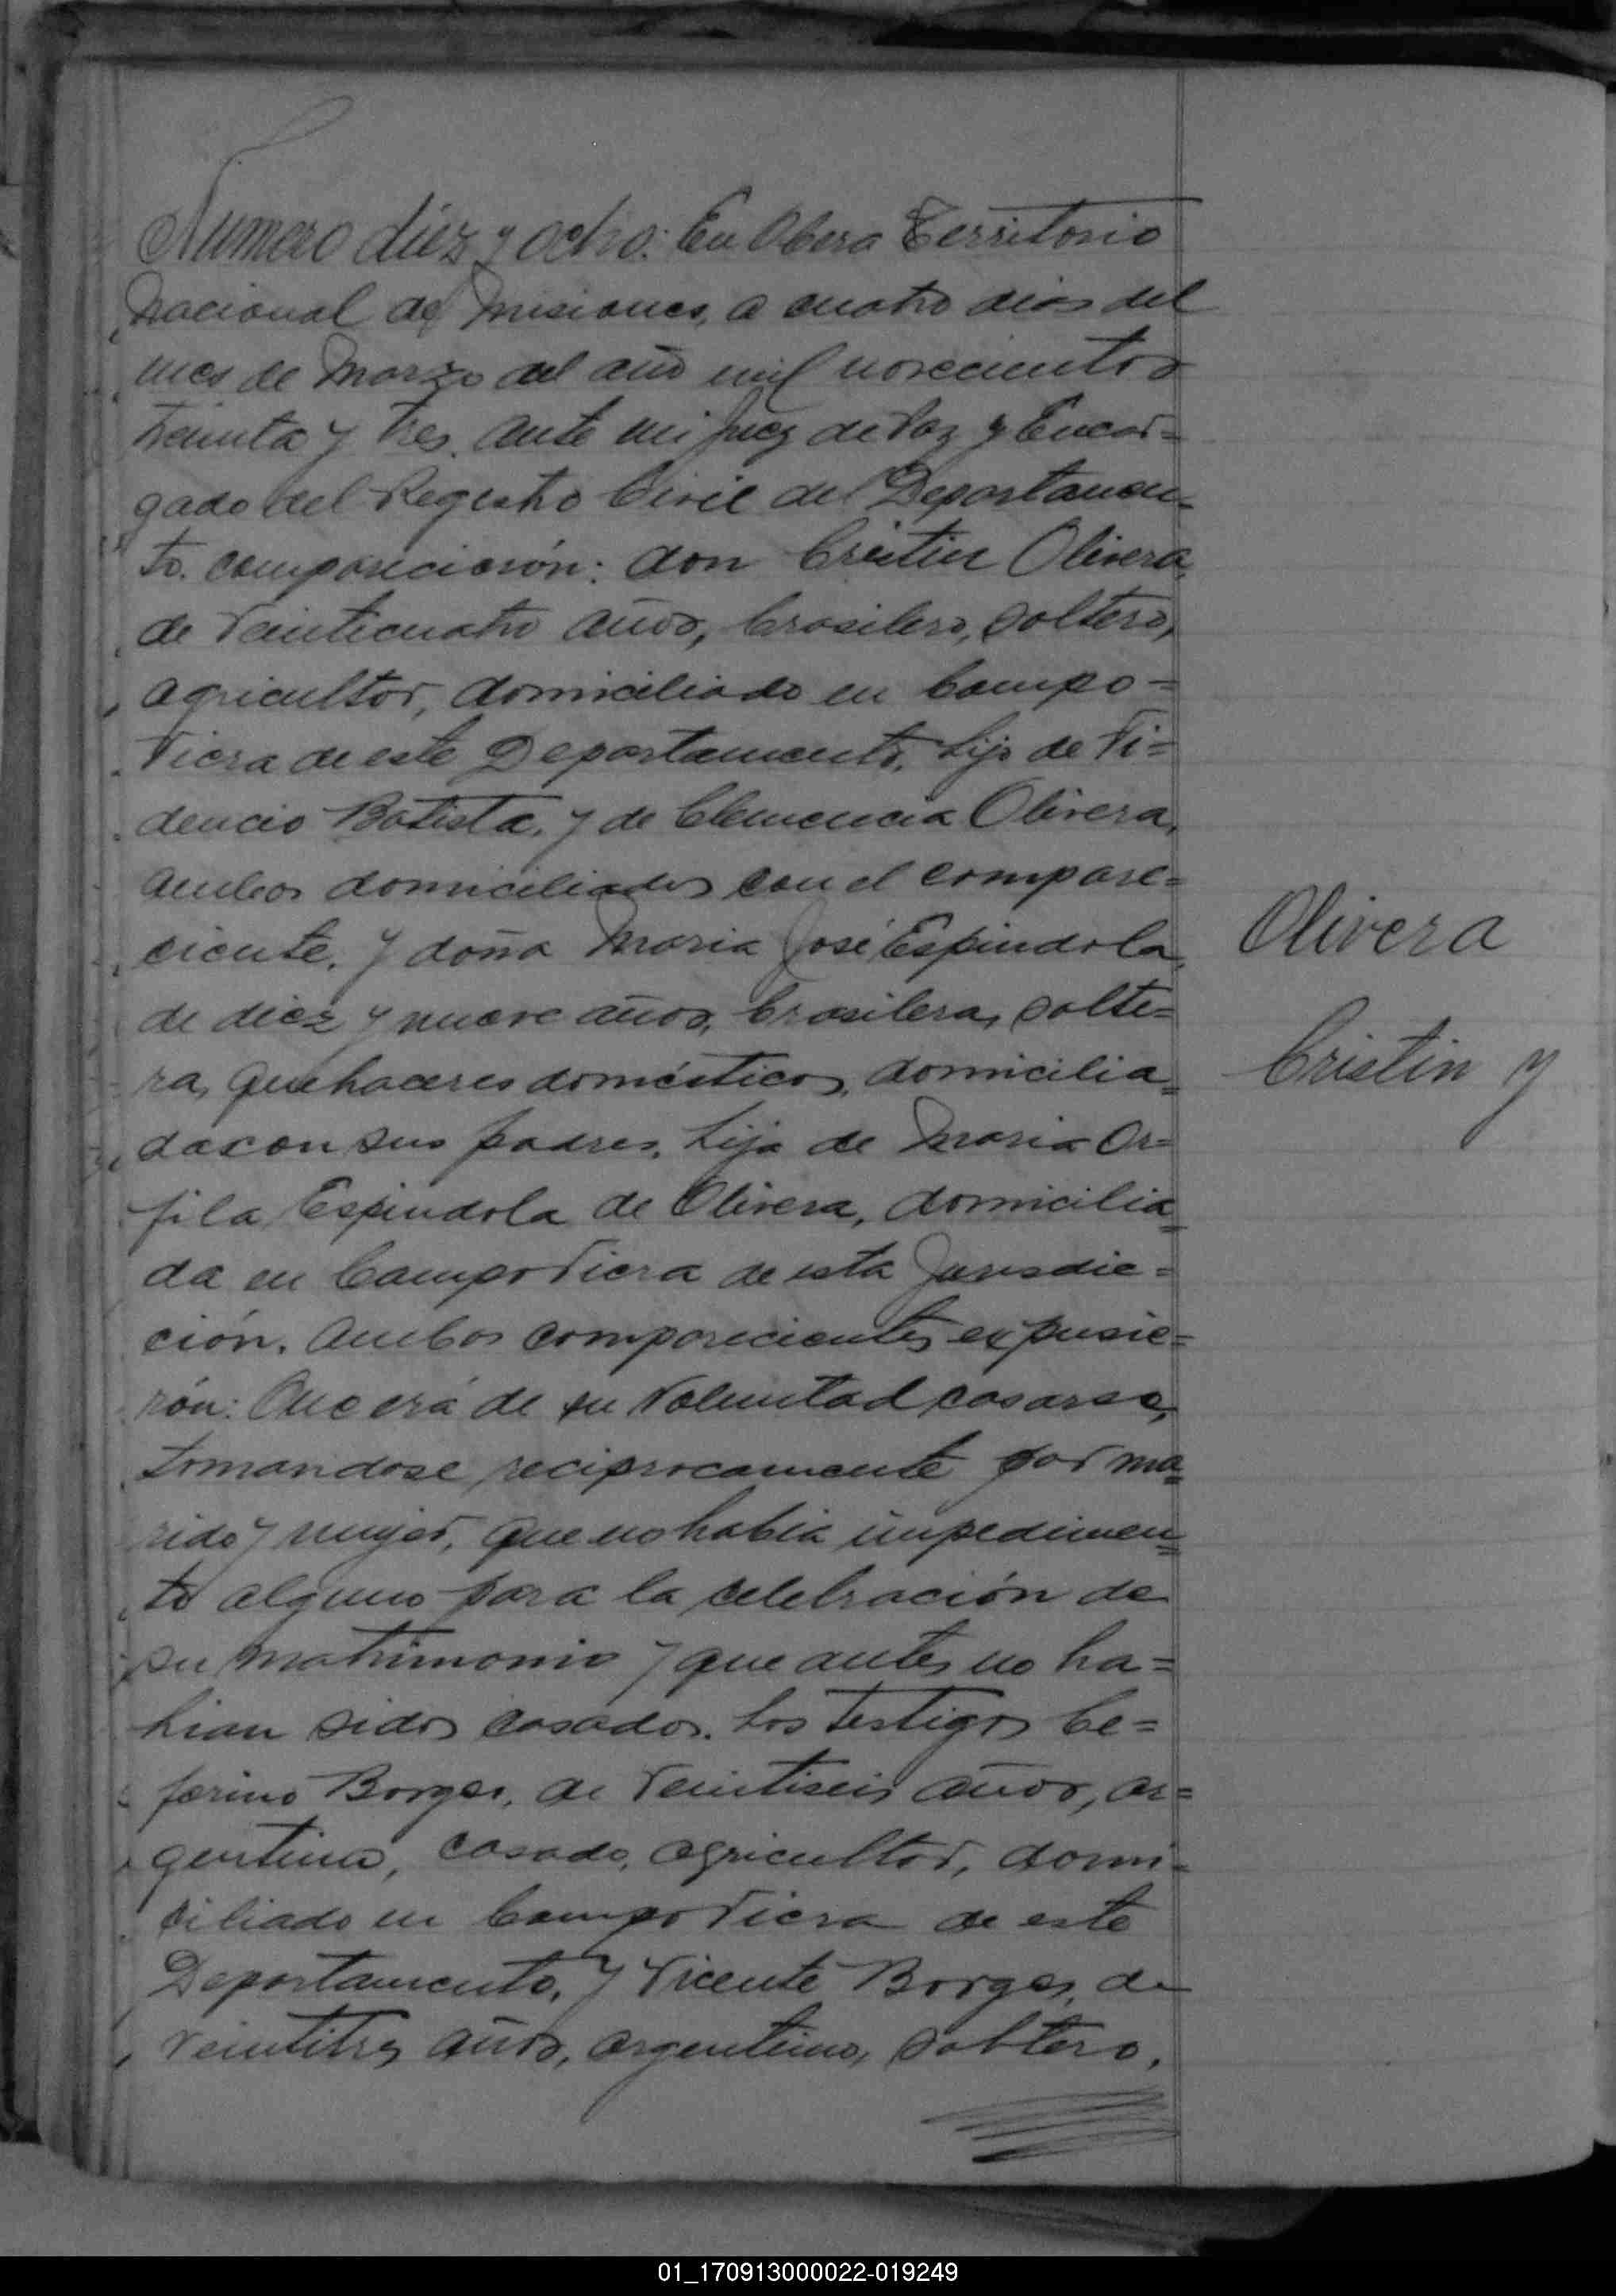 Numero diez y ocho: En Obera Territorio
Nacional de Misiones, a cuatro dias del
mes de Marzo del año mil novecientos
treinta y tres, ante mi Juez de Paz y Encar=
gado del Registro Civil del Departamen=
to. comparecierón: don Cristin Olivera,
de veinticuatro años, brasilero, soltero,
agricultor, domiciliado en Campo=
Viera de este Departamento, hijo de Fi=
dencio Batista, y de Clemencia Olivera,
ambos domiciliados con el compare=
ciente. y doña Maria José Espindola,
de diez y nueve años, brasilera, solte=
ra, quehaceres domésticos, domicilia=
da con sus padres, hija de Maria Or=
fila Espindola de Olivera, domicilia=
da en Campo Viera de esta Jurisdic=
ción. Ambos comparecientes expusie=
rón: Que era de su voluntad casarse,
tomandose reciprocamente por ma=
rido y mujer, que no habia impedimen=
to alguno para la celebración de
su matrimonio y que antes no ha=
bian sidos casados. Los testigos Ce=
ferino Borges, de veintiseis años, ar=
gentino, casado, agricultor, domi=
ciliado en Campo Viera de este
Departamento, y Vicente Borges, de
veintitres años, argentino, soltero,
Olivera
Cristin y
01_170913000022-019249